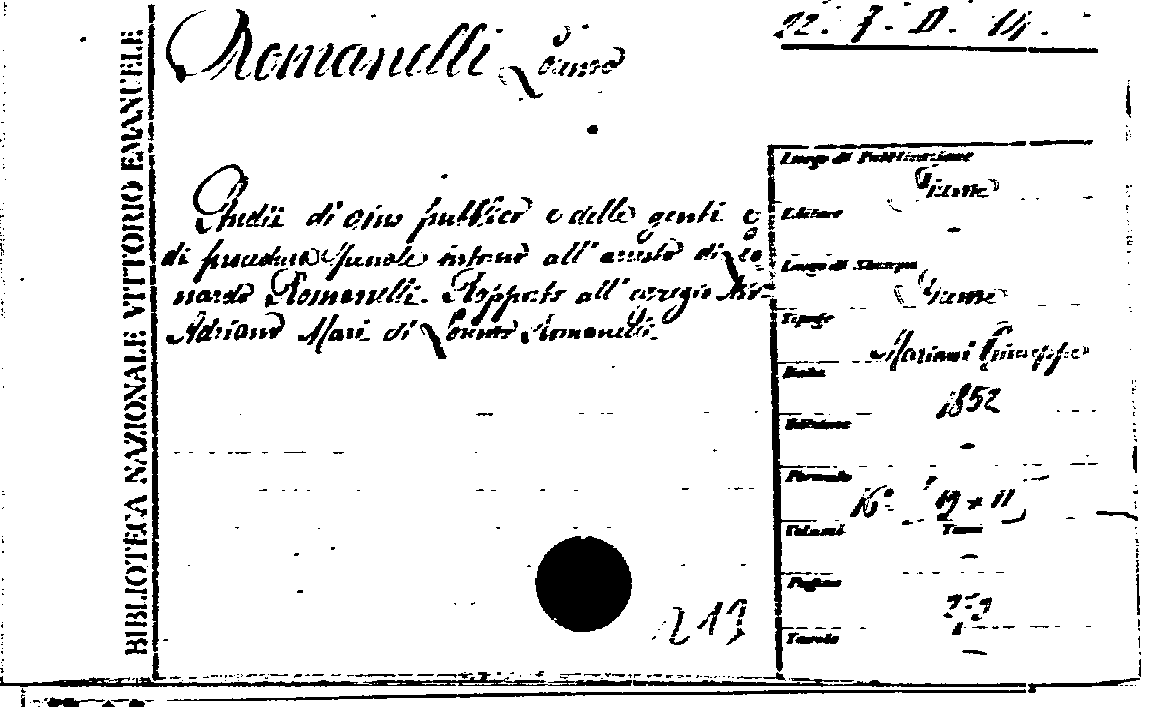 22. 7. D. 14.
Romanelli Lorenzo
BIBLIOTECA NAZIONALE VITTORIO EMANUELE
Studii di pubblico e delle genti e
di procedura Penale intorno all'arresto di Leo
nardo Romanelli. Rapporto all'egregio
Adriano Mari di Lorenzo Romanelli.
Luogo di Pubblicazione
Firenze
Editore
-
Luogo di Stampa
Firenze
Tipogr.
Mariani Giuseppe
Data
1852
Edizione
-
Formato
16°
Volumi Tomi
-
Pagine
Tavole
-
213